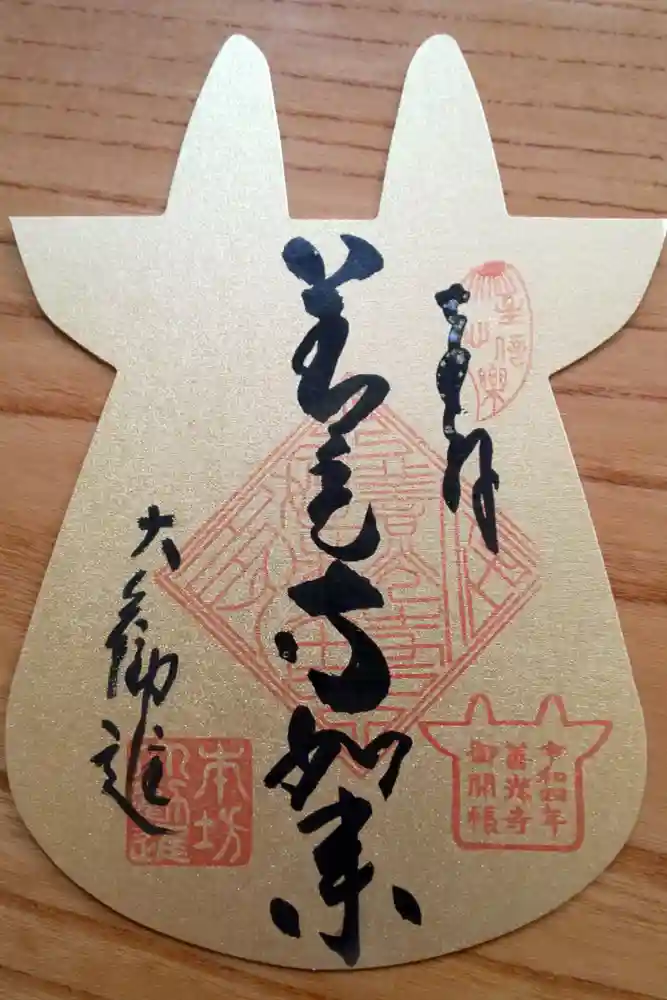 奉拝
善光寺如来
大勧進
令和四年
善光寺
御開帳
本坊